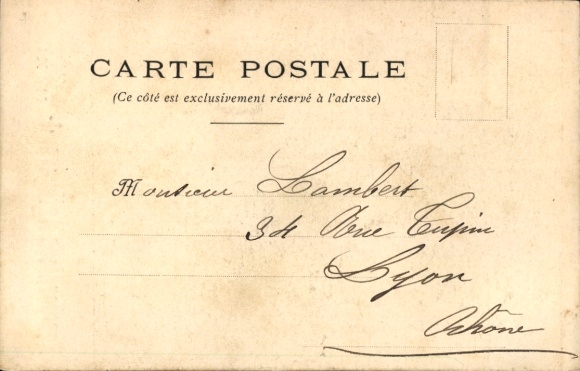 CARTE POSTALE
(Ce côté est exclusivement réservé à l'adresse)
Monsieur Lambert
34 Rue Tupin
Lyon
Rhône